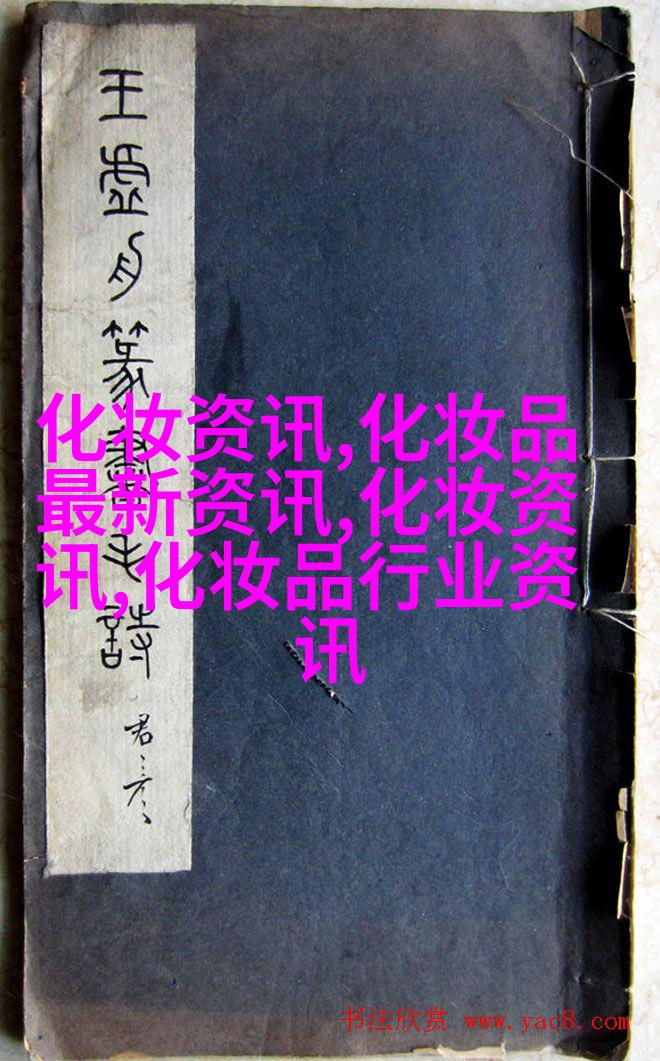 王虛舟篆書毛詩
化妆资讯,化妆品
最新资讯,化妆资
讯,化妆品行业资
讯
书法欣赏 www.yac8.com